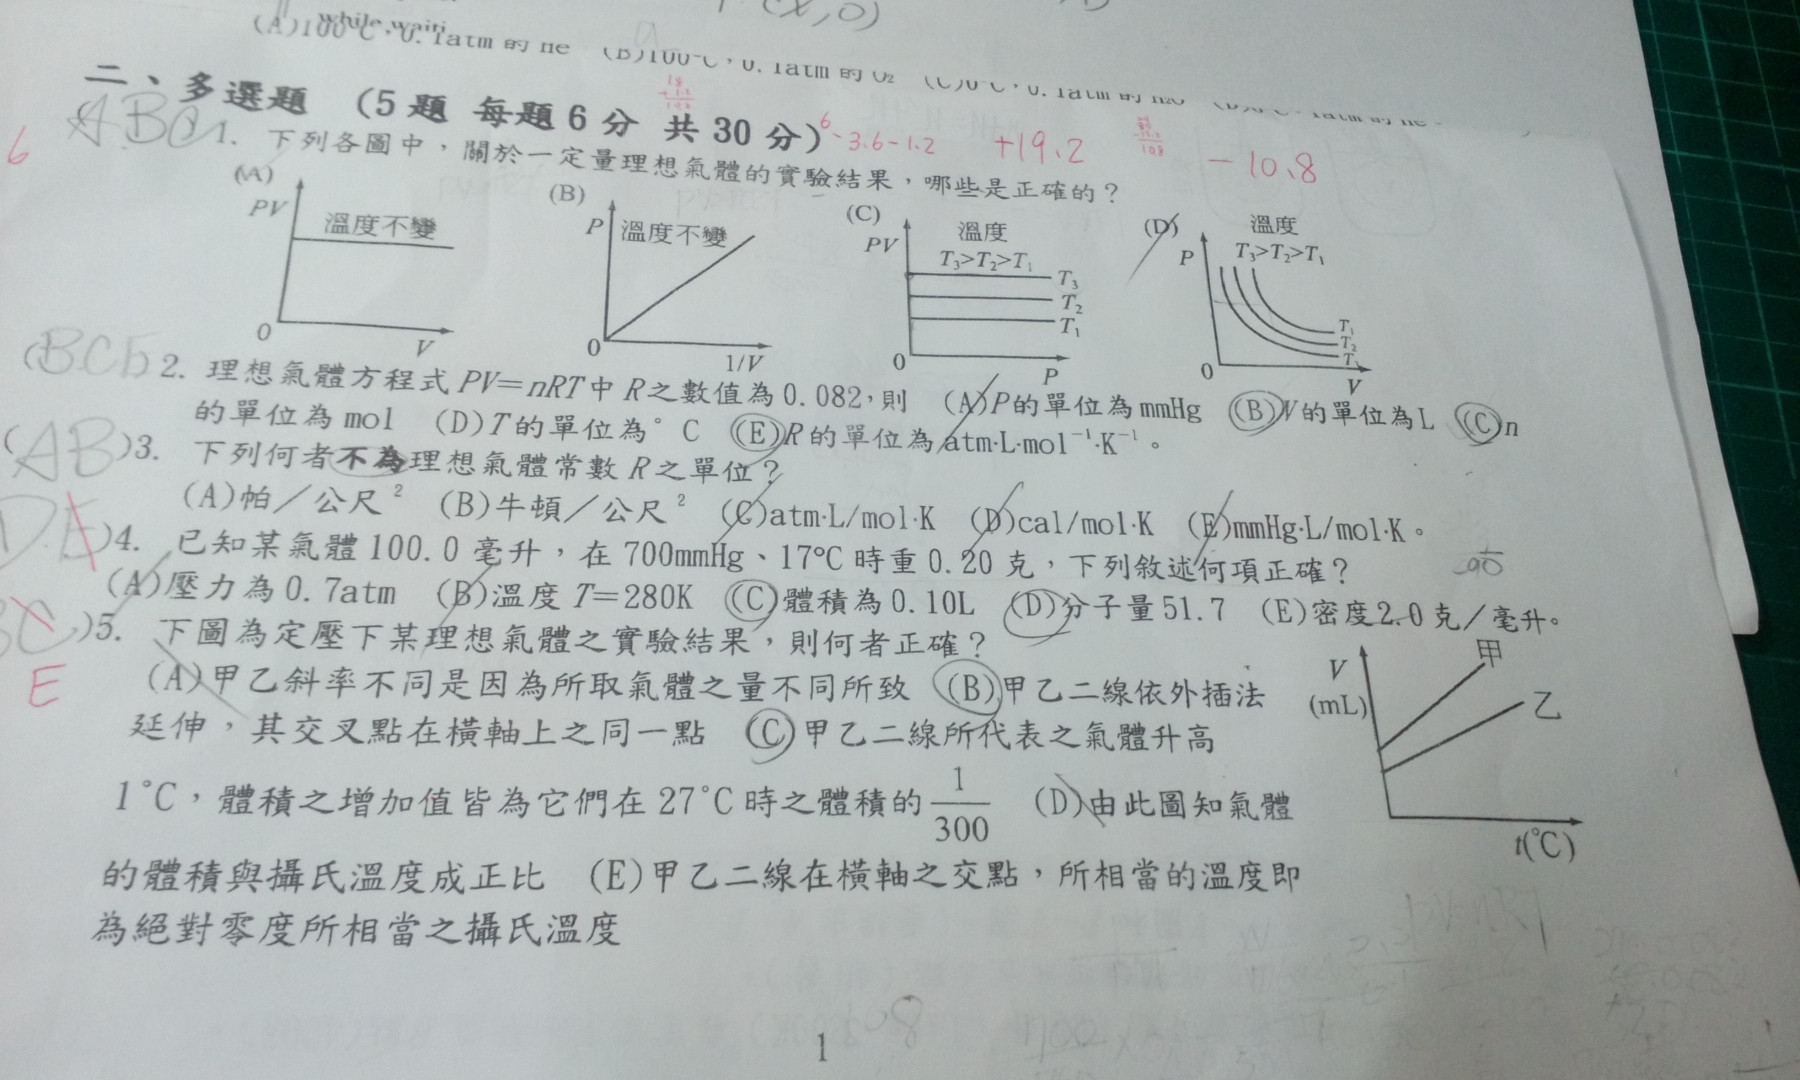 (A)100°C，0.1atm 的 He (B)100°C，0.1atm 的 O₂ (C)0°C，0.1atm 的
while waiti
二、多選題 (5題 每題6分 共30分)
6 -3.6-1.2 +19.2 -10.8
ABC 1. 下列各圖中，關於一定量理想氣體的實驗結果，哪些是正確的？
6
(A) PV 溫度不變 0 V
(B) P 溫度不變 0 1/V
(C) PV 溫度 T₃>T₂>T₁ T₃ T₂ T₁ 0 P
(D) P 溫度 T₃>T₂>T₁ T₁ T₂ T₃ 0 V
(BCE)2. 理想氣體方程式 PV=nRT中 R之數值為0.082，則 (A)P的單位為mmHg (B)V的單位為L (C)n
的單位為 mol (D)T的單位為°C (E)R的單位為atm·L·mol⁻¹·K⁻¹。
(AB)3. 下列何者不為理想氣體常數 R之單位？
(A)帕／公尺² (B)牛頓／公尺² (C)atm·L/mol·K (D)cal/mol·K (E)mmHg·L/mol·K。
DE)4. 已知某氣體100.0毫升，在700mmHg、17°C時重0.20克，下列敘述何項正確？
(A)壓力為0.7atm (B)溫度 T=280K (C)體積為0.10L (D)分子量51.7 (E)密度2.0克／毫升。
BC)5. 下圖為定壓下某理想氣體之實驗結果，則何者正確？
E
(A)甲乙斜率不同是因為所取氣體之量不同所致 (B)甲乙二線依外插法
延伸，其交叉點在橫軸上之同一點 (C)甲乙二線所代表之氣體升高
1°C，體積之增加值皆為它們在27°C時之體積的 1/300 (D)由此圖知氣體
的體積與攝氏溫度成正比 (E)甲乙二線在橫軸之交點，所相當的溫度即
為絕對零度所相當之攝氏溫度
V (mL) 甲 乙 t(°C)
1